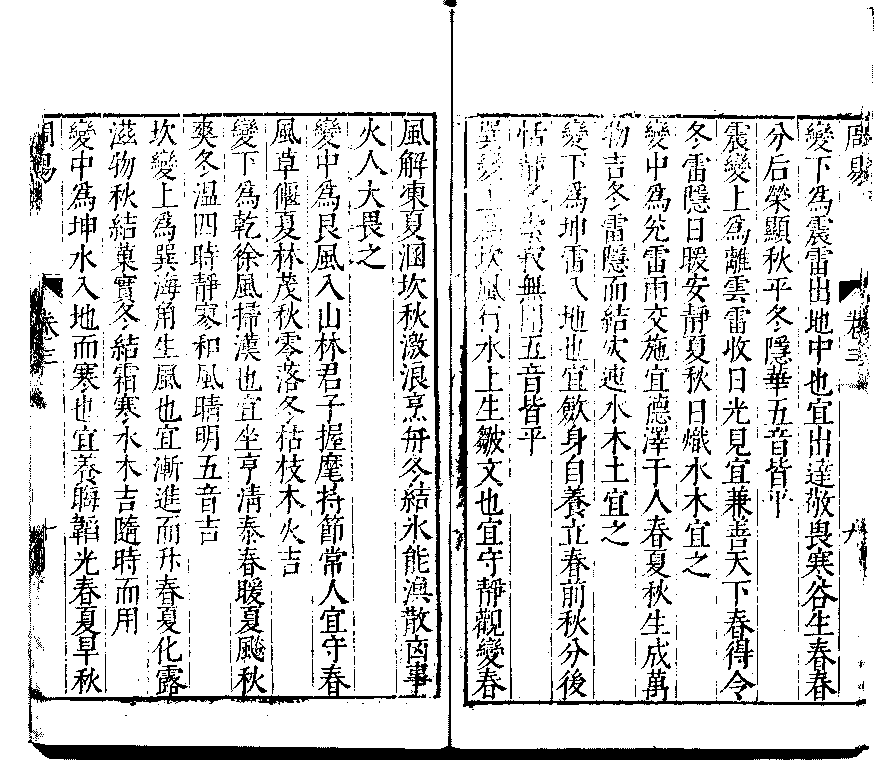 周易
卷三
九
變下爲震雷出地中也宜出達敬畏寒谷生春春
分后榮顯秋平冬隱華五音皆平
震變上爲離雲雷收日光見宜兼善天下春得令
冬雷隱日暖安靜夏秋日熾水木宜之
變中爲兌雷雨交施宜德澤于人春夏秋生成萬
物吉冬雷隱而結實速水木土宜之
變下爲坤雷入地也宜斂身自養立春前秋分後
恬靜冬寂無聞五音皆平
巽變上爲坎風行水上生皺文也宜守靜觀變春
風解凍夏涸坎秋激浪烹舟冬結氷能渙散凶事
火人大畏之
變中爲艮風入山林君子握麾持節常人宜守春
風草偃夏林茂秋零落冬枯枝木火吉
變下爲乾徐風掃漢也宜坐亨淸泰春暖夏颺秋
爽冬溫四時靜寥和風晴明五音吉
坎變上爲巽海角生風也宜漸進而升春夏化露
滋物秋結菓實冬結霜寒水木吉隨時而用
變中爲坤水入地而寒也宜養晦韜光春夏旱秋
周易
卷三
十